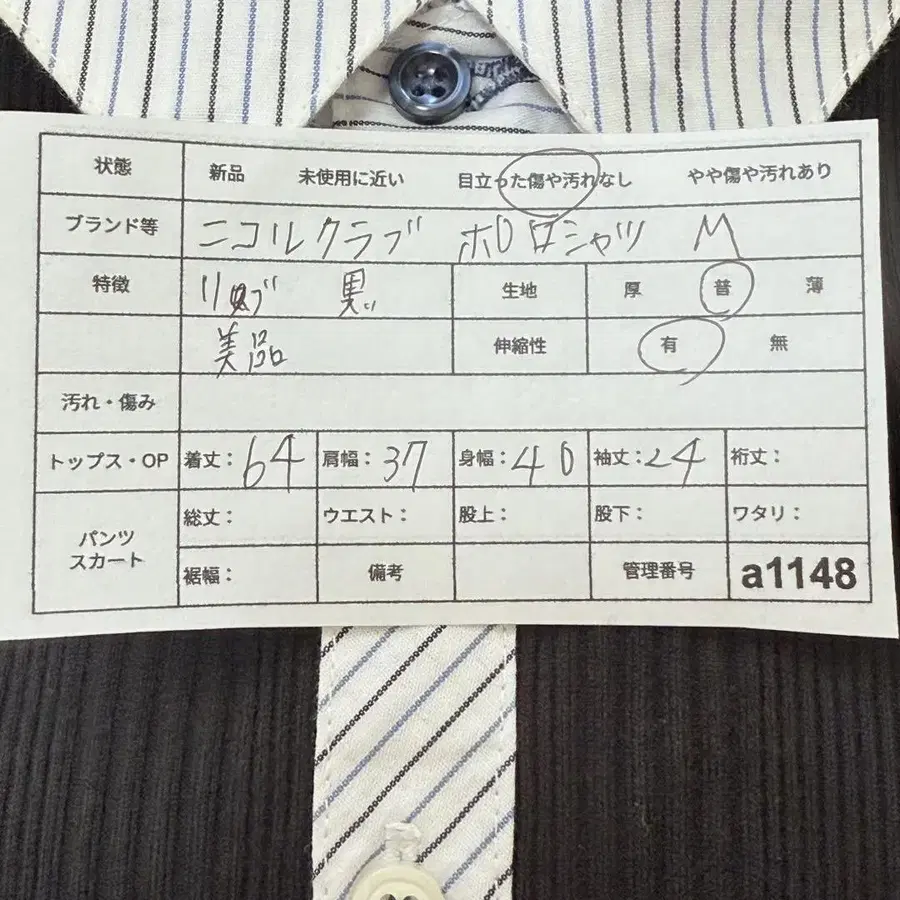 状態 新品 未使用に近い 目立った傷や汚れなし やや傷や汚れあり
ブランド等 ニコルクラブ ポロシャツ M
特徴 リブ 黒 生地 厚 普 薄
美品 伸縮性 有 無
汚れ・傷み
トップス・OP 着丈:64 肩幅:37 身幅:40 袖丈:24 裄丈:
パンツ スカート 総丈: ウエスト: 股上: 股下: ワタリ:
裾幅: 備考 管理番号 a1148